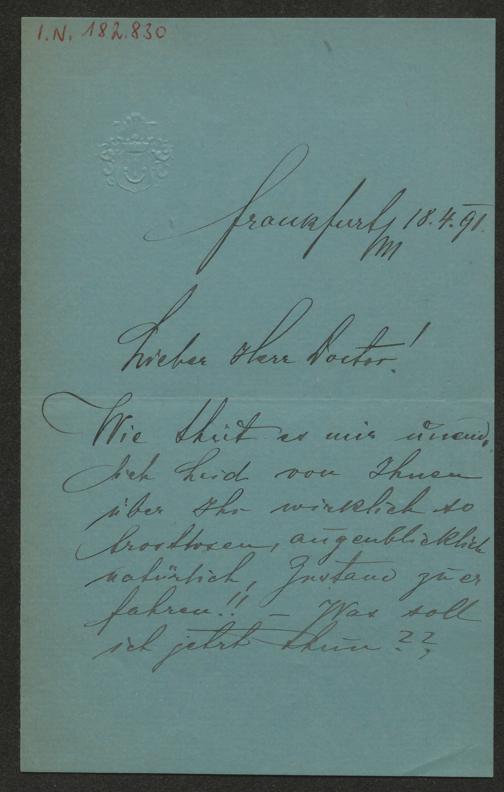 I.N. 182.830
Frankfurt/M 18.4.91.
Lieber Herr Doctor!
Wie thut es mir unend-
lich leid von Ihnen
über Ihr wirklich so
trostlosen, augenblicklich
natürlich, Zustand zu er
fahren!! – Was soll
ich jetzt thun??